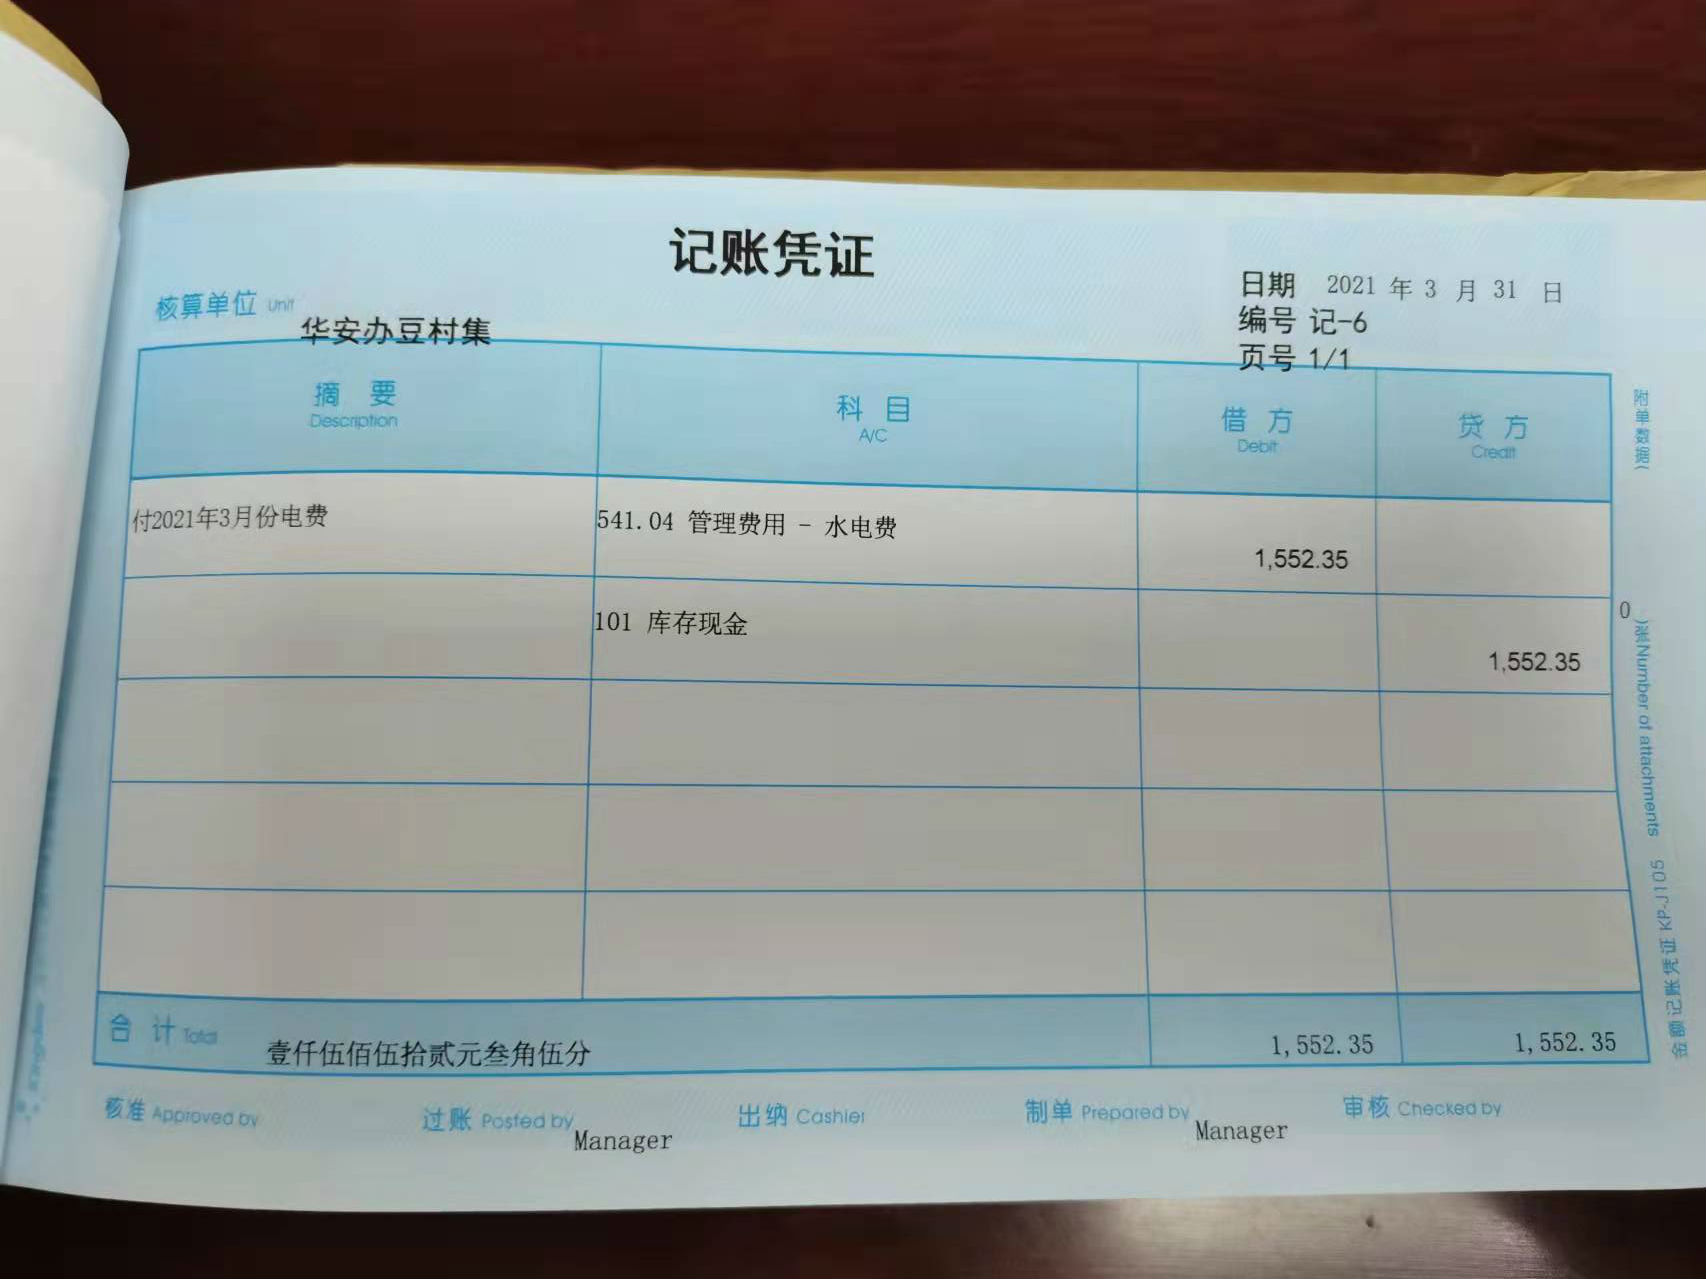 记账凭证
核算单位 Unit 华安办豆村集
日期 2021 年 3 月 31 日
编号 记-6
页号 1/1
摘 要 科 目 借 方 贷 方
Description A/C Debit Credit
付2021年3月份电费 541.04 管理费用 - 水电费 1,552.35
101 库存现金 1,552.35
合 计 Total 壹仟伍佰伍拾贰元叁角伍分 1,552.35 1,552.35
核准 Approved by 过账 Posted by Manager 出纳 Cashier 制单 Prepared by Manager 审核 Checked by
附单数据( 0 )张Number of attachments 金额记账凭证 KP-J105